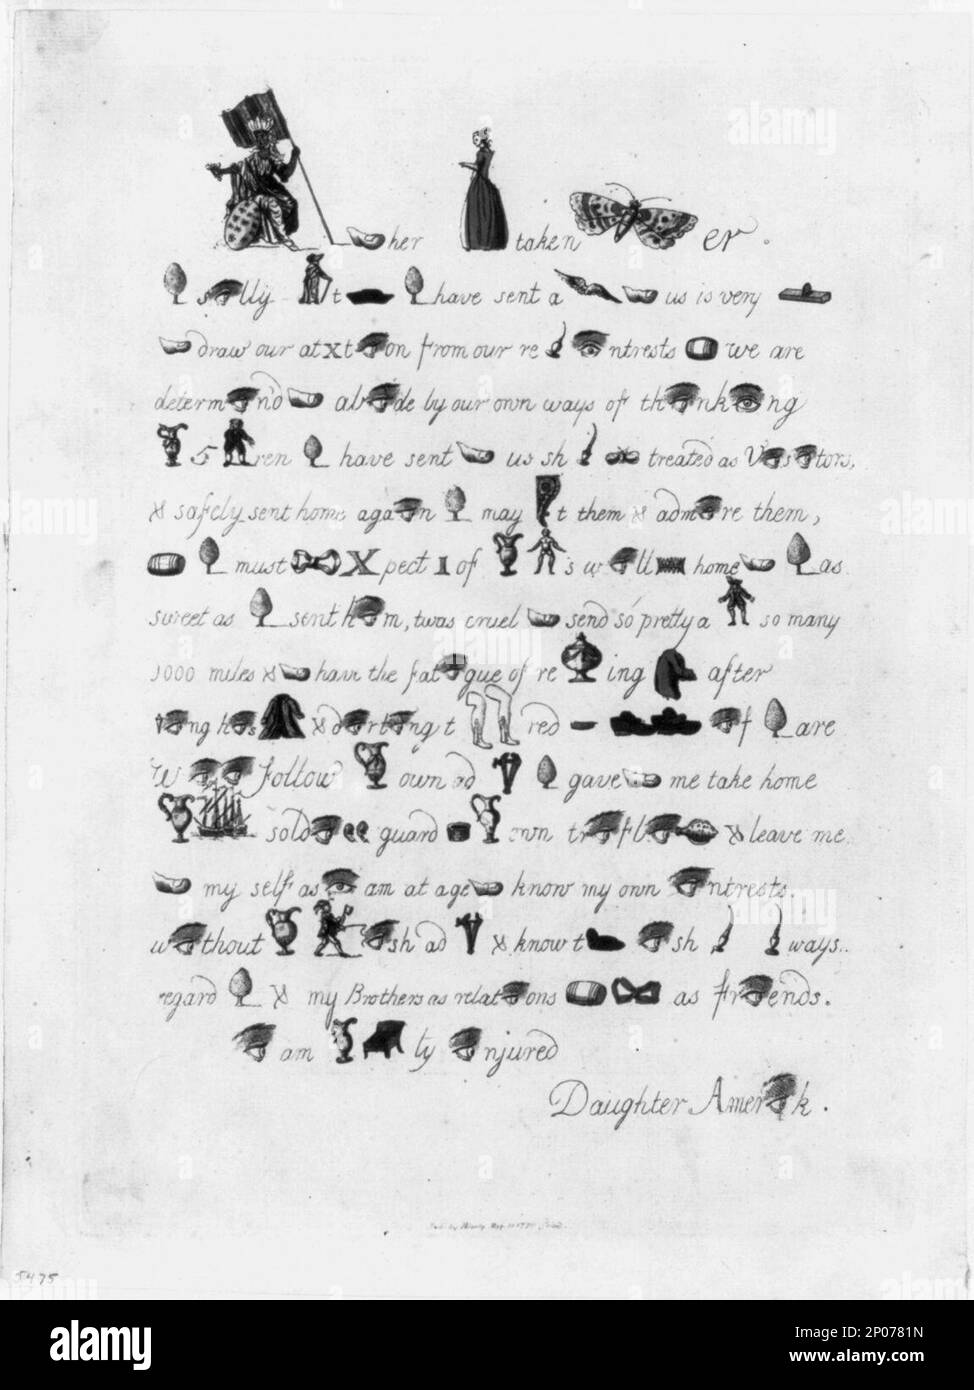 her taken er.
s lly t have sent a us is very
draw our at x t on from our re ntrests we are
determ n'd ab de by our own ways of th nk ng
5 ren have sent us sh treated as V s tors,
& safely sent home aga n may t them & adm re them,
must X pect 1 of 's w ll home as
sweet as sent h m, twas cruel send so pretty a so many
1000 miles & have the fat gue of re ing after
ng h s & d rt ng t red f are
W follow own ad gave me take home
sold guard own tr fl & leave me
my self as am at age know my own ntrests.
w thout sh ad & know t sh ways..
regard & my Brothers as relat ons as fr ends.
am ly njured
Daughter Amer k.
5475
alamy
Image ID: 2P0781N
www.alamy.com